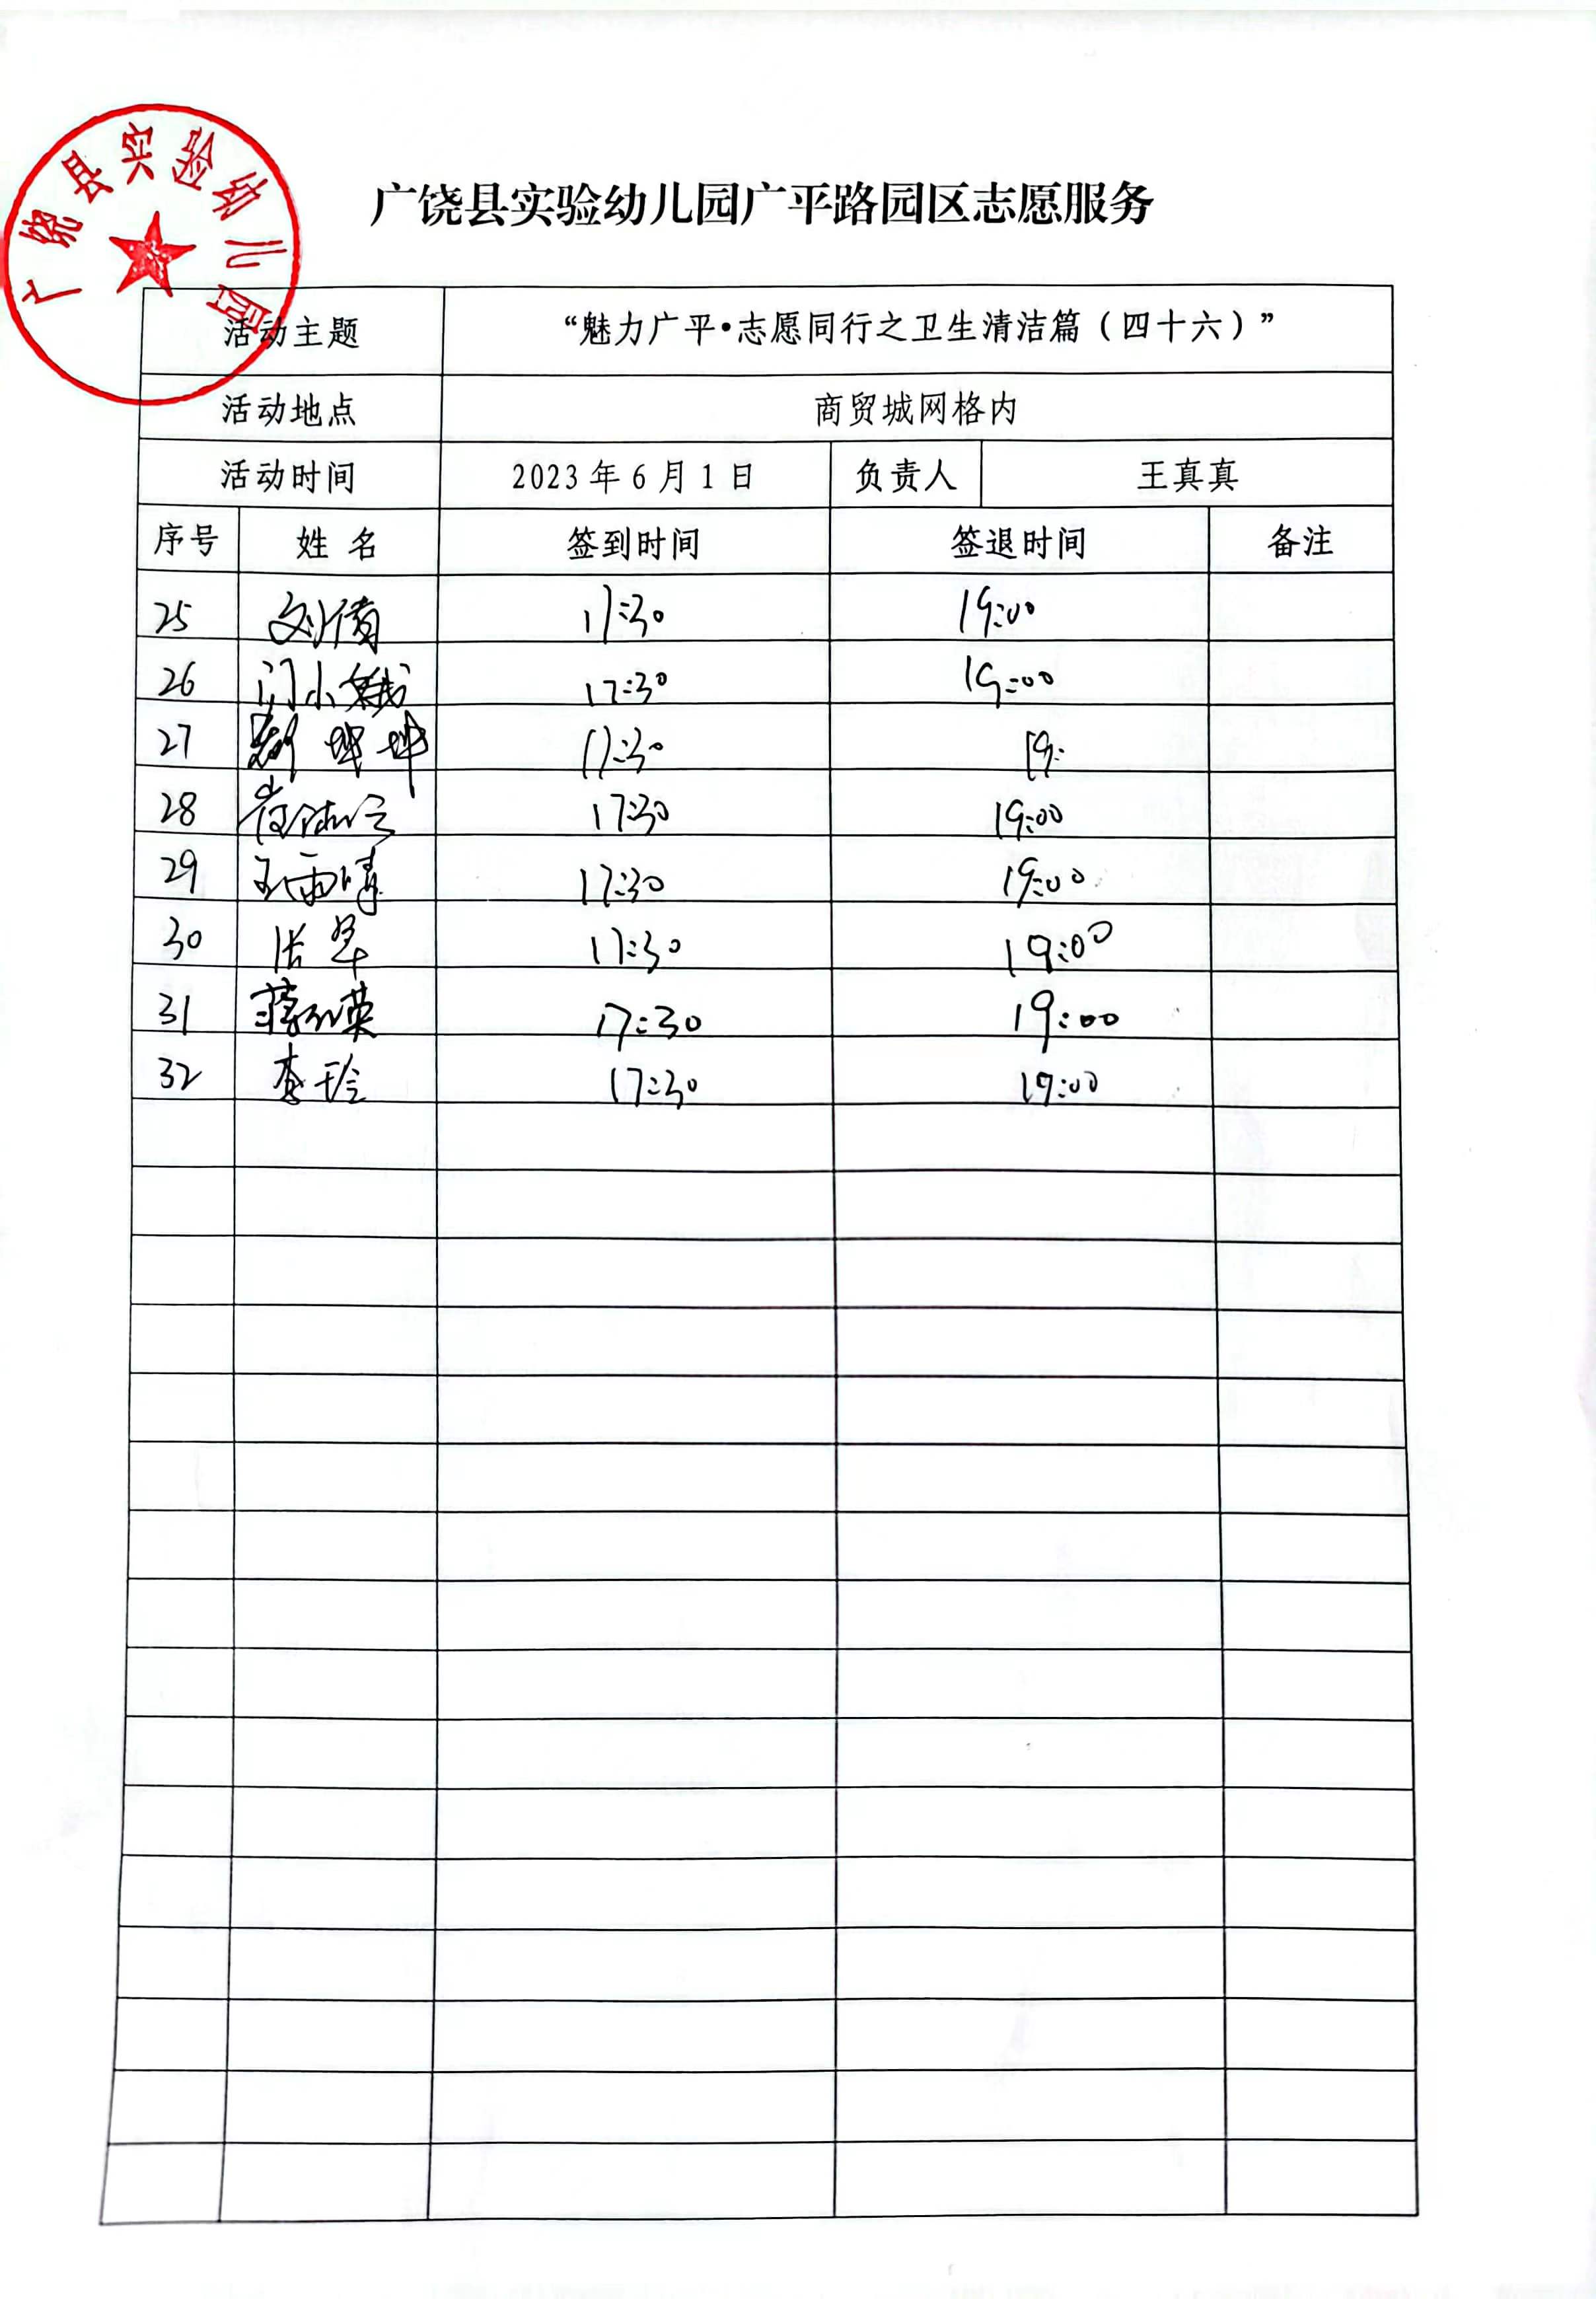 广饶县实验幼儿园
广饶县实验幼儿园广平路园区志愿服务
活动主题 “魅力广平•志愿同行之卫生清洁篇（四十六）”
活动地点 商贸城网格内
活动时间 2023年6月1日 负责人 王真真
序号 姓名 签到时间 签退时间 备注
25 刘倩 17:30 19:00
26 门小娥 17:30 19:00
27 坤坤 17:30 19:
28 17:30 19:00
29 王雨晴 17:30 19:00
30 张翠 17:30 19:00
31 蒋英 17:30 19:00
32 李玲 17:30 19:00